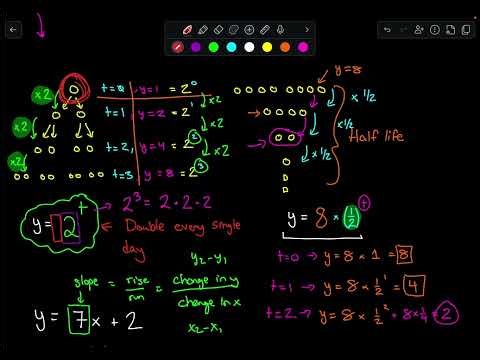 t=0 y=1 = 2^0
x2
t=1, y=2 = 2^1
x2
x2
t=2, y=4 = 2^2
x2
x2
t=3 y=8 = 2^3
x2
y=2^t
→ 2^3 = 2·2·2
Double every single
day
slope = rise/run = change in y/change in x
y2-y1
x2-x1
y = 7x + 2
y=8
x 1/2
x 1/2
x 1/2
Half life
y = 8 * (1/2)^t
t=0 → y = 8 * 1 = 8
t=1 → y = 8 * 1/2^1 = 4
t=2 → y = 8 * 1/2^2 = 8*1/4 = 2